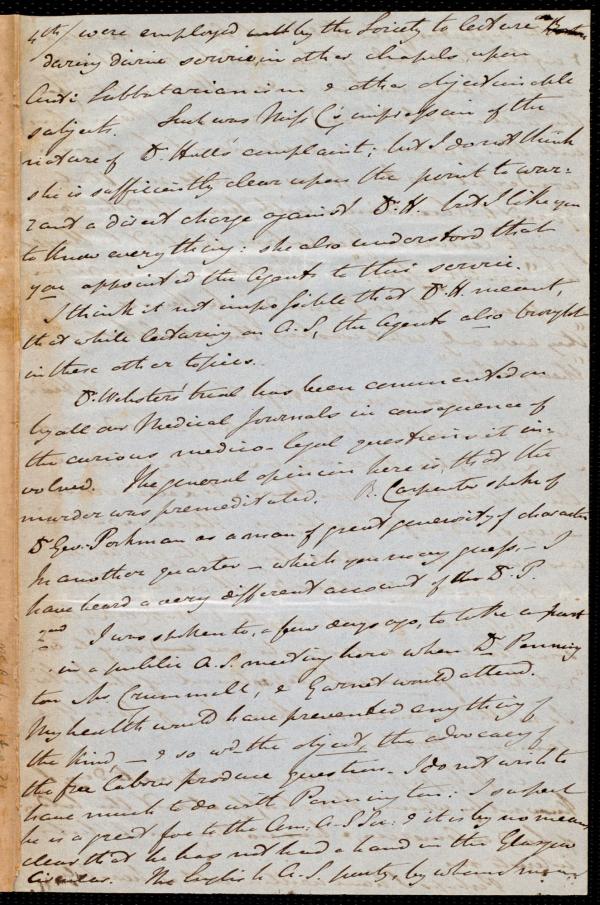 4th/ were employed by the Society to lecture on
during divine service in other chapels upon
Anti Sabbatarianism & other objectionable
subjects. Such was Miss C's impression of the
nature of Dr. Hull's complaint; but I do not think
she is sufficiently clear upon the point to war=
rant a direct charge against Dr. H. but I like you
to know everything: she also understood that
you appointed the Agents to this service.
I think it not impossible that Dr. H. meant,
that while lecturing on A.S., the Agents also brought
in these other topics.
Dr. Webster's trial has been commented on
by all our Medical Journals in consequence of
the curious medico-legal questions it in=
volved. The general opinion here is, that the
murder was premeditated. Carpenter spoke of
Dr. Geo. Parkman as a man of great generosity of character
In another quarter - which you may guess, - I
have heard a very different account of this Dr. P.
2nd I was spoken to, a few days ago, to take a part
in a public A.S. meeting here when Dr. Penning
ton Mr. Crummell, & Garnet would attend.
My health would have prevented anything of
the kind - & so wd. the object, the advocacy of
the free labour produce question. I do not wish to
have much to do with Pennington: I suspect
he is a great foe to the Am. A.S. Soc: & it is by no means
clear that he has not had a hand in the Glasgow
Circular. The English A.S. party, by whom